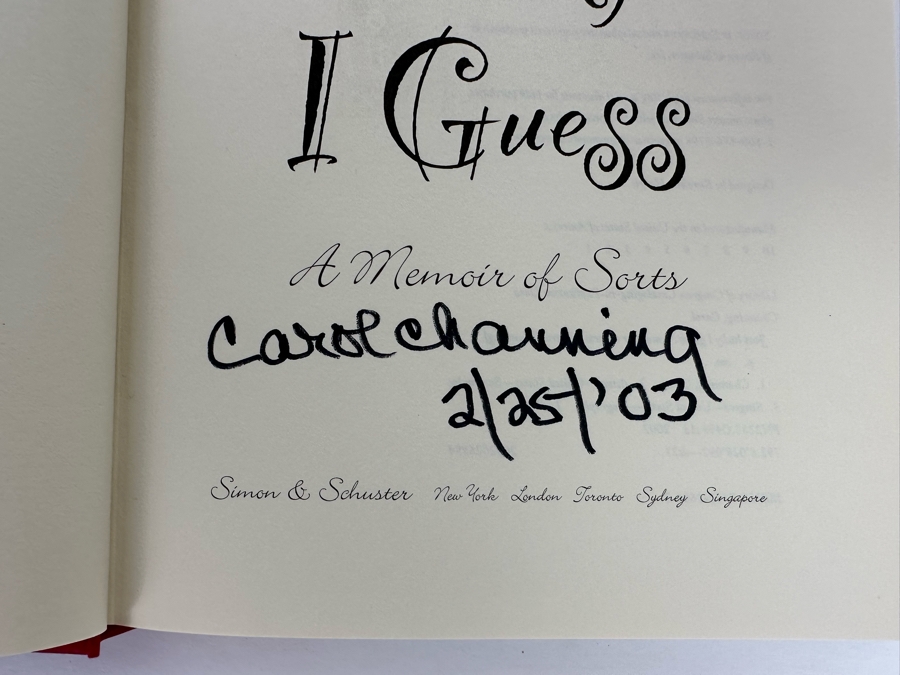 I Guess
A Memoir of Sorts
Carol Channing
2/25/'03
Simon & Schuster New York London Toronto Sydney Singapore